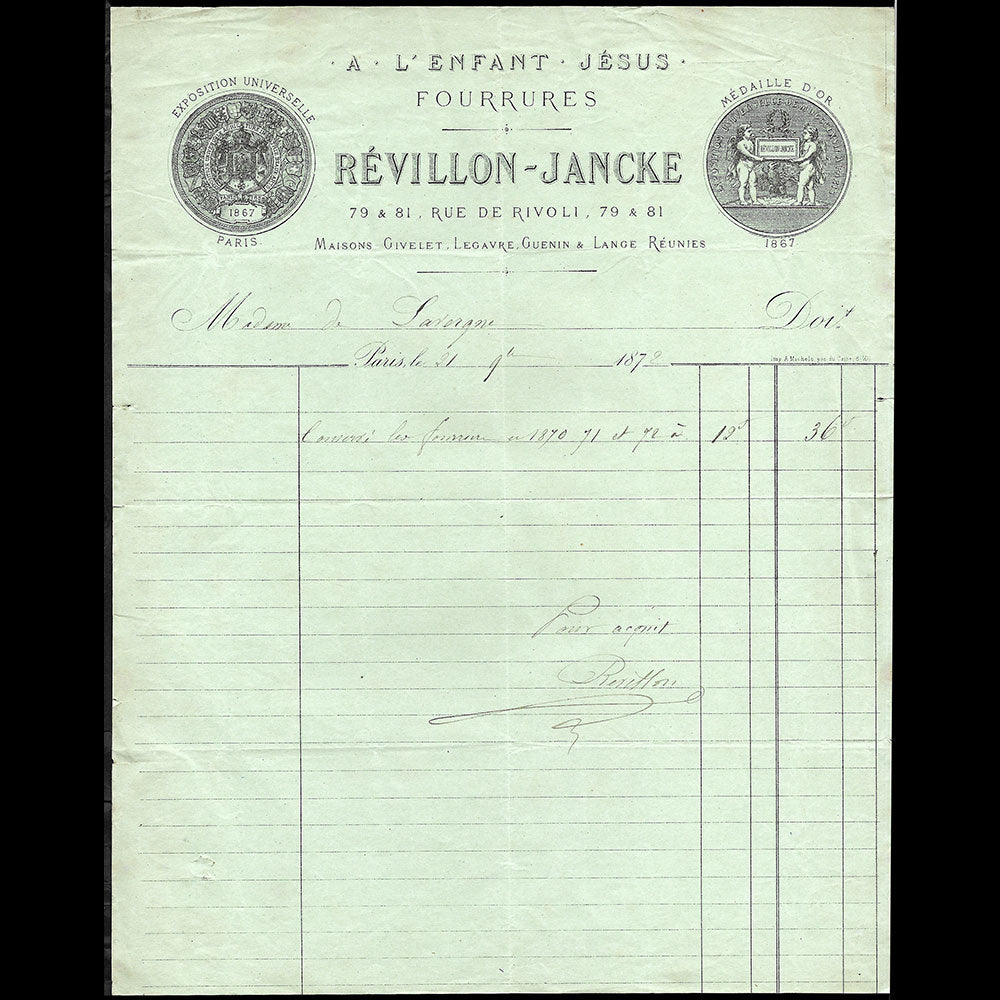 · A · L'ENFANT · JÉSUS ·
FOURRURES
EXPOSITION UNIVERSELLE
1867
PARIS.
MÉDAILLE D'OR
RÉVILLON-JANCKE
1867
RÉVILLON-JANCKE
79 & 81, RUE DE RIVOLI, 79 & 81
MAISONS GIVELET, LEGAVRE, GUENIN & LANGE RÉUNIES
Madame de Lavergne Doit
Paris, le 21 9bre 1872
Conservé les fourrures en 1870 71 et 72 à 12f 36f
Pour acquit
Revillon